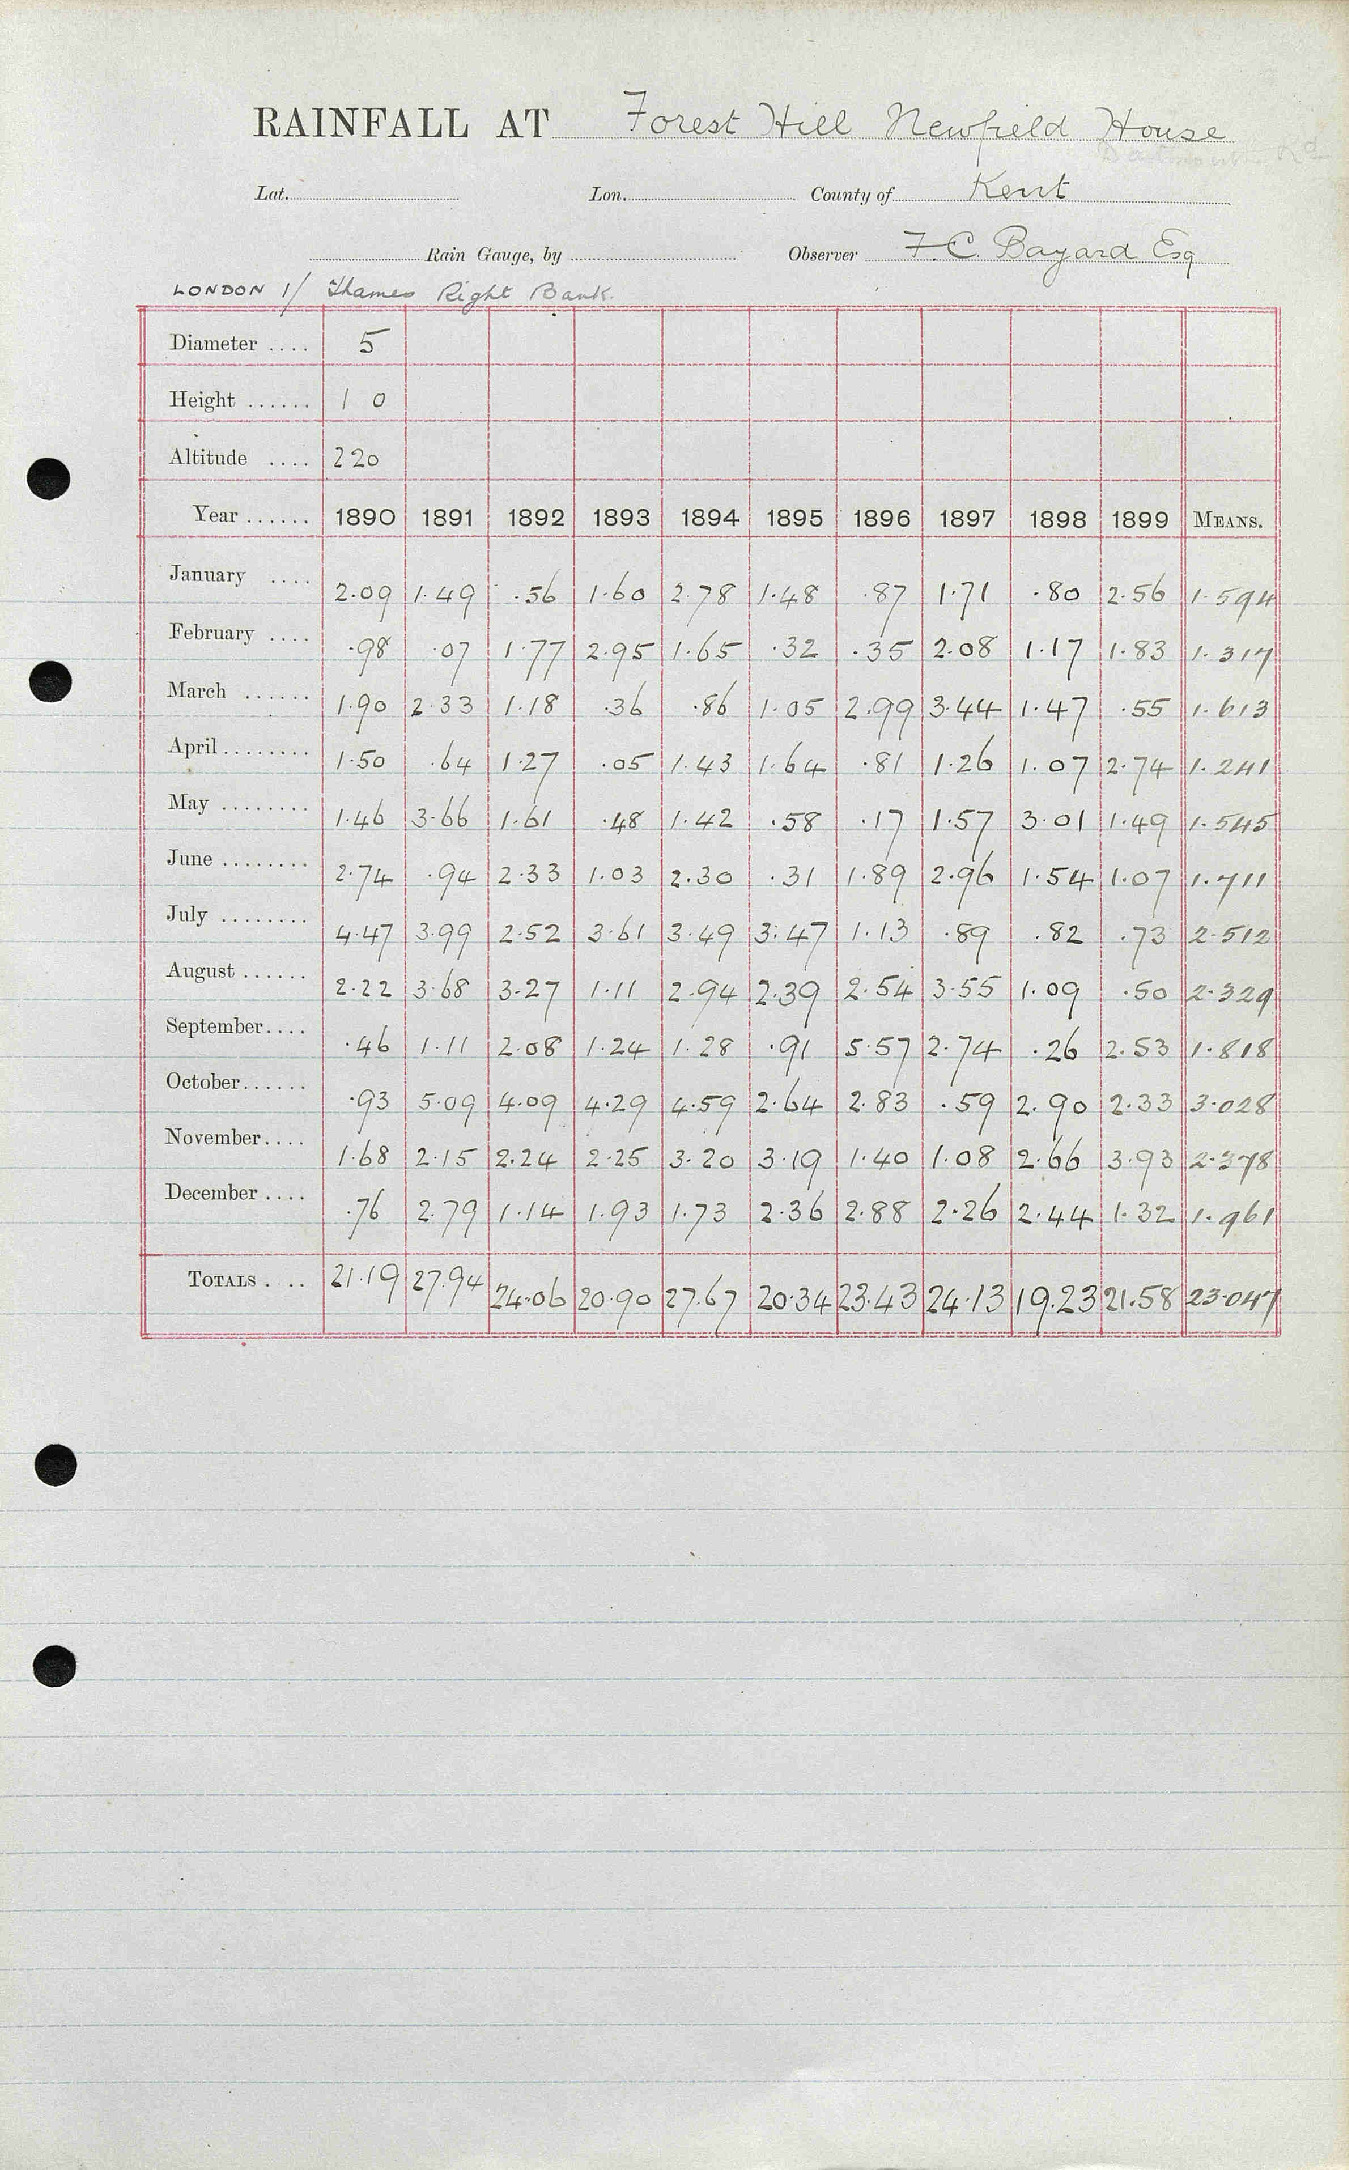 RAINFALL AT Forest Hill Newfield House
Dartmouth Rd
Lat. Lon. County of Kent
Rain Gauge, by Observer F.C. Bayard Esq
LONDON 1/ Thames Right Bank.
Diameter .... 5
Height ...... 1 0
Altitude .... 220
Year ...... 1890 1891 1892 1893 1894 1895 1896 1897 1898 1899 MEANS.
January .... 2.09 1.49 .56 1.60 2.78 1.48 .87 1.71 .80 2.56 1.594
February .... .98 .07 1.77 2.95 1.65 .32 .35 2.08 1.17 1.83 1.317
March ...... 1.90 2.33 1.18 .36 .86 1.05 2.99 3.44 1.47 .55 1.613
April ........ 1.50 .64 1.27 .05 1.43 1.64 .81 1.26 1.07 2.74 1.241
May ........ 1.46 3.66 1.61 .48 1.42 .58 .17 1.57 3.01 1.49 1.545
June ........ 2.74 .94 2.33 1.03 2.30 .31 1.89 2.96 1.54 1.07 1.711
July ........ 4.47 3.99 2.52 3.61 3.49 3.47 1.13 .89 .82 .73 2.512
August ...... 2.22 3.68 3.27 1.11 2.94 2.39 2.54 3.55 1.09 .50 2.329
September .... .46 1.11 2.08 1.24 1.28 .91 5.57 2.74 .26 2.53 1.818
October ...... .93 5.09 4.09 4.29 4.59 2.64 2.83 .59 2.90 2.33 3.028
November .... 1.68 2.15 2.24 2.25 3.20 3.19 1.40 1.08 2.66 3.93 2.378
December .... .76 2.79 1.14 1.93 1.73 2.36 2.88 2.26 2.44 1.32 1.961
TOTALS .... 21.19 27.94 24.06 20.90 27.67 20.34 23.43 24.13 19.23 21.58 23.047